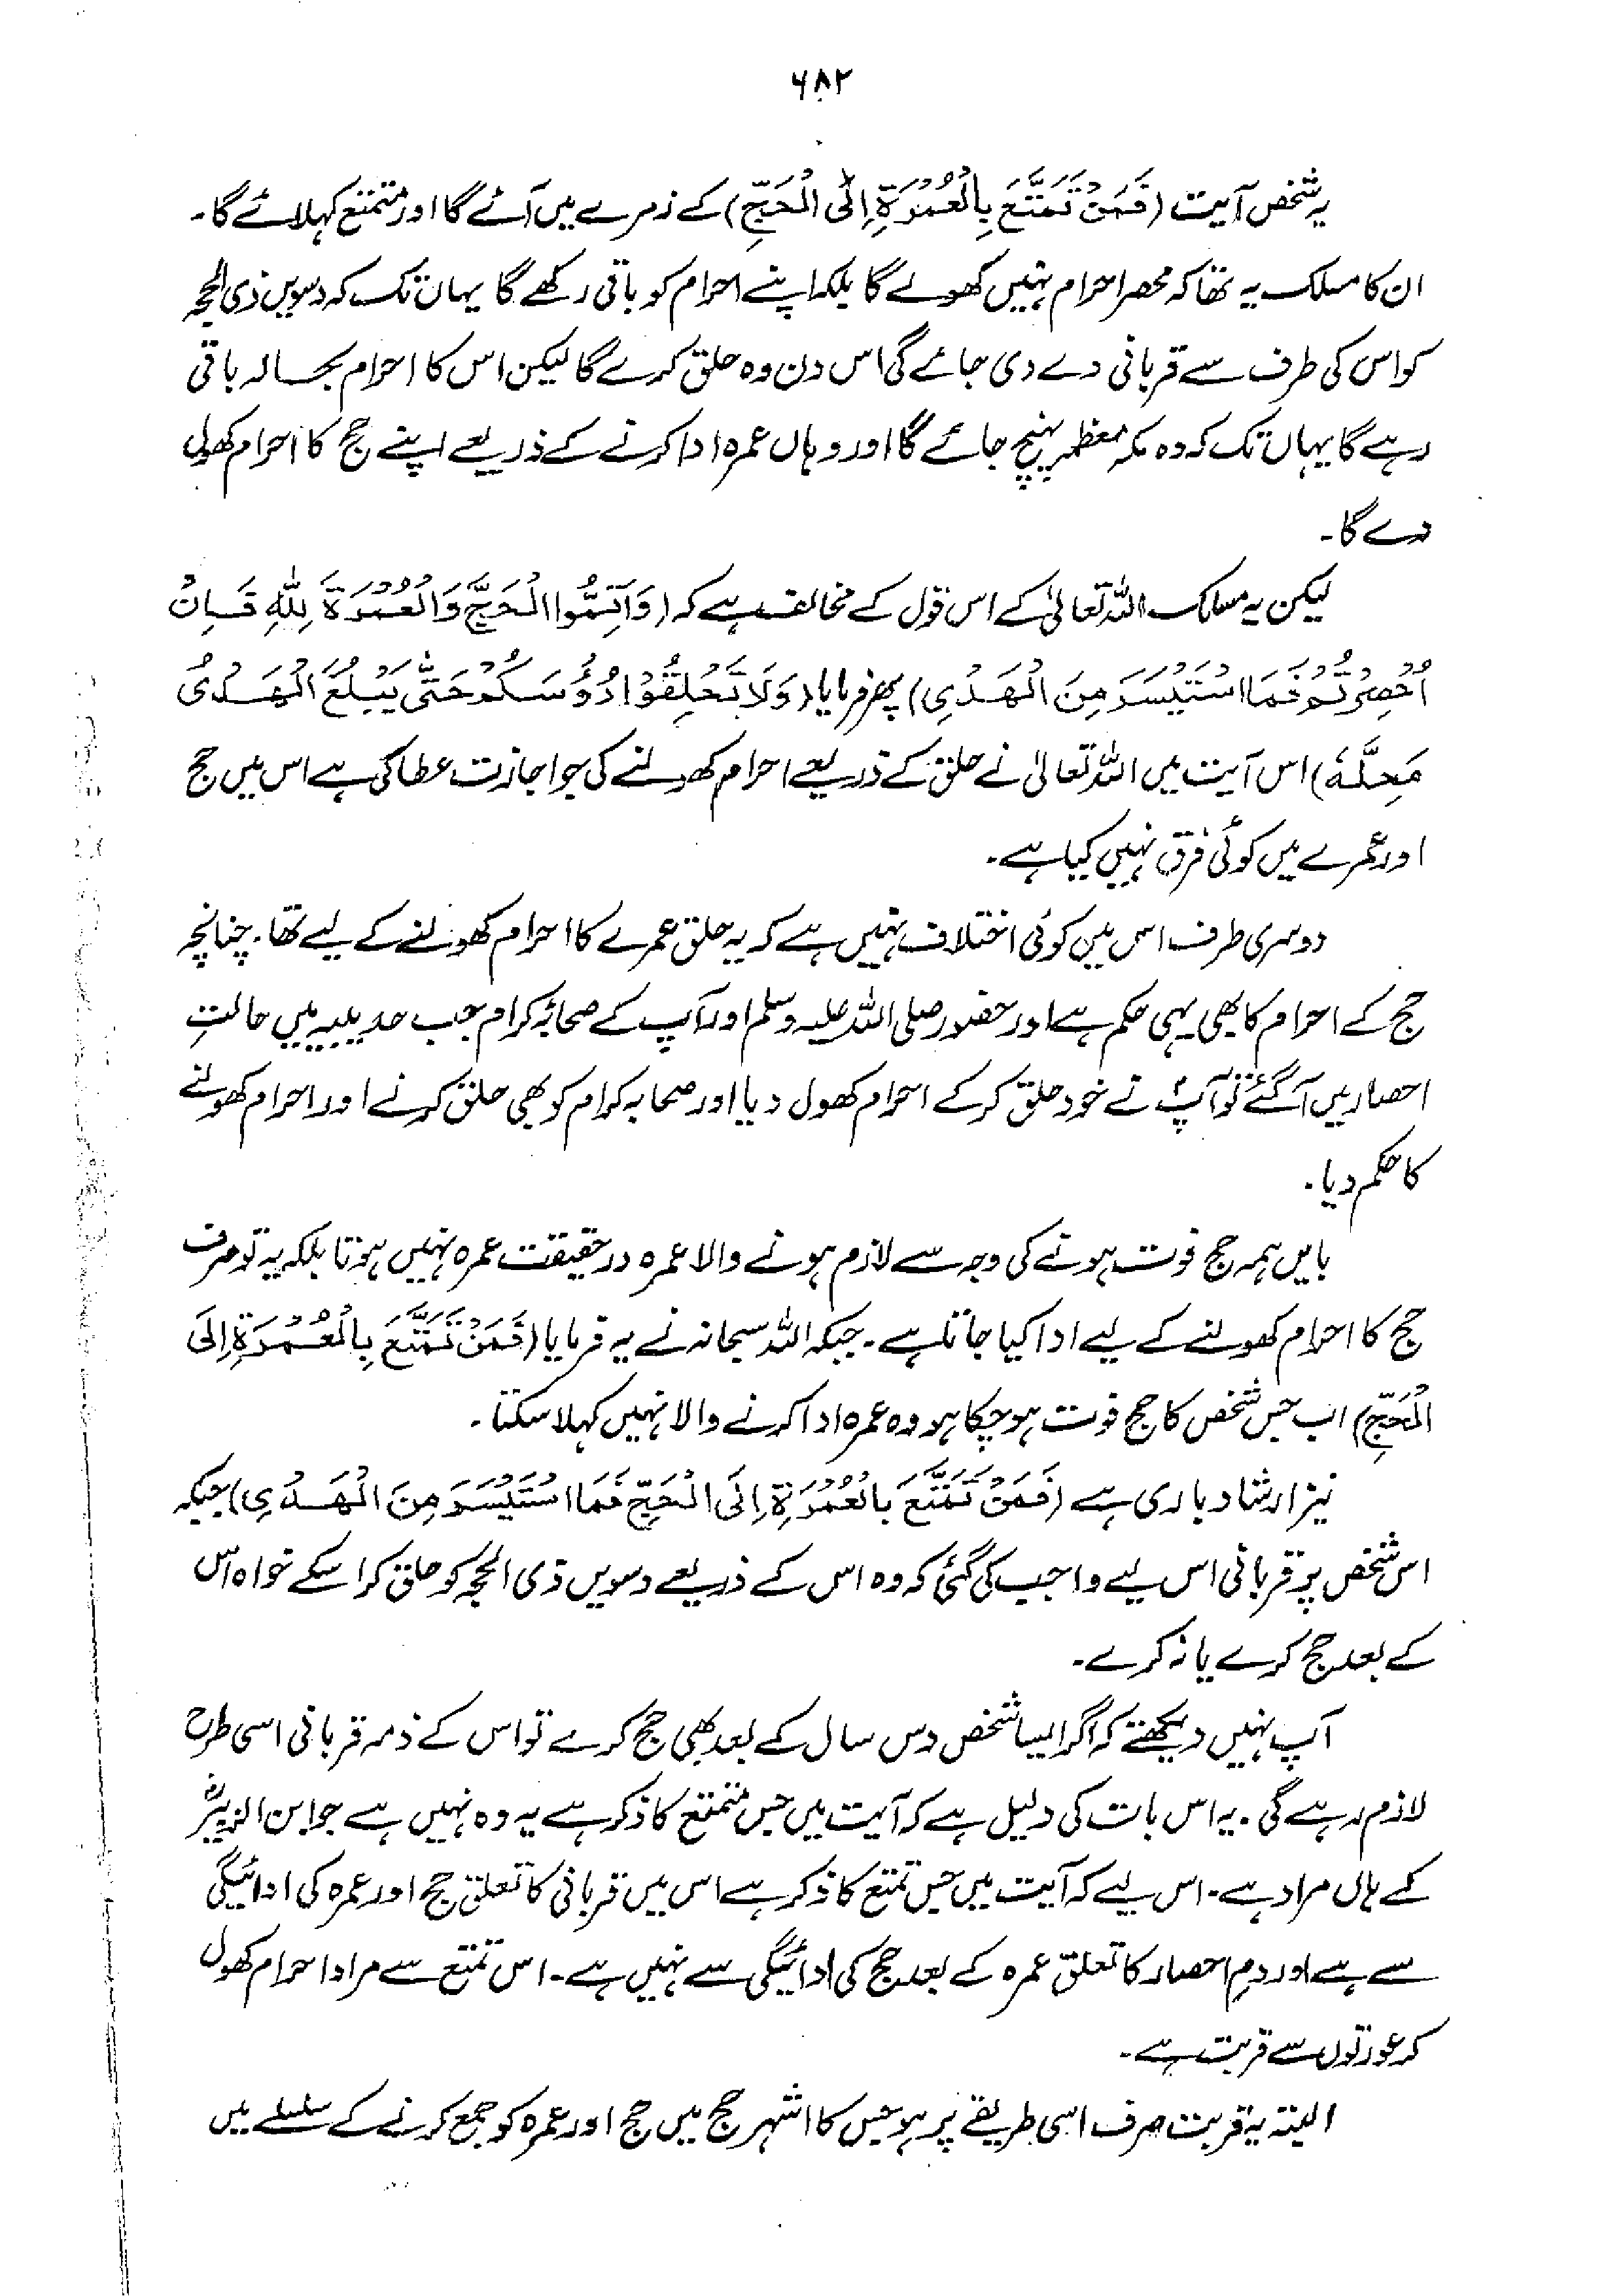 ۶۸۲
یہ شخص آیت (فَمَنْ تَمَتَّعَ بِالْعُمْرَةِ اِلَى الْحَجِّ) کے زمرے میں آئے گا اور متمتع کہلائے گا۔
ان کا مسلک یہ تھا کہ محصر احرام نہیں کھولے گا بلکہ اپنے احرام کو باقی رکھے گا یہاں تک کہ دسویں ذی الحجہ
کو اس کی طرف سے قربانی دے دی جائے گی اس دن وہ حلق کرے گا لیکن اس کا احرام بحالہ باقی
رہے گا یہاں تک کہ وہ مکہ معظمہ پہنچ جائے گا اور وہاں عمرہ ادا کرنے کے ذریعے اپنے حج کا احرام کھول
دے گا۔
لیکن یہ مسلک اللہ تعالیٰ کے اس قول کے مخالف ہے کہ (وَاَتِمُّوا الْحَجَّ وَالْعُمْرَةَ لِلّٰهِ فَاِنْ
اُحْصِرْتُمْ فَمَا اسْتَيْسَرَ مِنَ الْهَدْيِ) پھر فرمایا (وَلَا تَحْلِقُوْا رُؤُسَكُمْ حَتّٰى يَبْلُغَ الْهَدْيُ
مَحِلَّهٗ) اس آیت میں اللہ تعالیٰ نے حلق کے ذریعے احرام کھولنے کی جو اجازت عطا کی ہے اس میں حج
اور عمرے میں کوئی فرق نہیں کیا ہے۔
دوسری طرف اس میں کوئی اختلاف نہیں ہے کہ یہ حلق عمرے کا احرام کھولنے کے لیے تھا۔ چنانچہ
حج کے احرام کا بھی یہی حکم ہے اور حضور صلی اللہ علیہ وسلم اور آپ کے صحابۂ کرام جب حدیبیہ میں حالتِ
احصار میں آگئے تو آپؐ نے خود حلق کر کے احرام کھول دیا اور صحابہ کرام کو بھی حلق کرنے اور احرام کھولنے
کا حکم دیا۔
بایں ہمہ حج فوت ہونے کی وجہ سے لازم ہونے والا عمرہ درحقیقت عمرہ نہیں ہوتا بلکہ یہ تو صرف
حج کا احرام کھولنے کے لیے ادا کیا جاتا ہے۔ جبکہ اللہ سبحانہ نے یہ فرمایا (فَمَنْ تَمَتَّعَ بِالْعُمْرَةِ اِلَى
الْحَجِّ) اب جس شخص کا حج فوت ہو چکا ہو وہ عمرہ ادا کرنے والا نہیں کہلا سکتا۔
نیز ارشاد باری ہے (فَمَنْ تَمَتَّعَ بِالْعُمْرَةِ اِلَى الْحَجِّ فَمَا اسْتَيْسَرَ مِنَ الْهَدْيِ) جبکہ
اس شخص پر قربانی اس لیے واجب کی گئی کہ وہ اس کے ذریعے دسویں ذی الحجہ کو حلق کرا سکے خواہ اس
کے بعد حج کرے یا نہ کرے۔
آپ نہیں دیکھتے کہ اگر ایسا شخص دس سال کے بعد بھی حج کرے تو اس کے ذمہ قربانی اسی طرح
لازم رہے گی۔ یہ اس بات کی دلیل ہے کہ آیت میں جس متمتع کا ذکر ہے یہ وہ نہیں ہے جو ابن الزبیرؓ
کے ہاں مراد ہے۔ اس لیے کہ آیت میں جس تمتع کا ذکر ہے اس میں قربانی کا تعلق حج اور عمرہ کی ادائیگی
سے ہے اور دمِ احصار کا تعلق عمرہ کے بعد حج کی ادائیگی سے نہیں ہے۔ اس تمتع سے مراد احرام کھول
کر عورتوں سے قربت ہے۔
البتہ یہ قربت صرف اسی طریقے پر ہو جس کا اشہر حج میں حج اور عمرہ کو جمع کرنے کے سلسلے میں